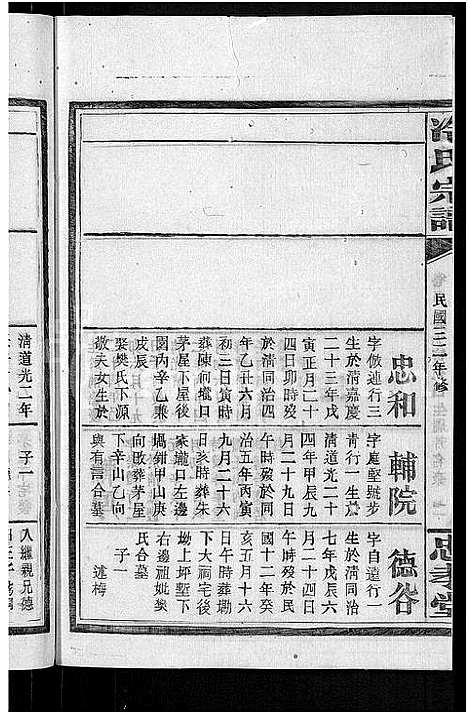 冷氏宗譜
民國三十二年修
忠孝堂
忠和
字倣連行三
生於清嘉慶
二十三年戊
寅正月二十
四日卯時殁
於清同治四
年乙丑六月
初三日寅時
葬陳何檻口
茅屋下屋後
園內辛乙兼
戌辰
娶樊氏下源
敬夫女生於
輔院
字庭堅號步
青行一生於
清道光二十
四年甲辰九
月二十九日
午時殁於同
治五年丙寅
九月二十六
日亥時葬朱
家瀧口左邊
塢鉗甲山庚
向啟葬茅屋
下辛山乙向
與有言合墓
德谷
字自遠行一
生於清同治
七年戊辰六
月二十四日
午時殁於民
國十二年癸
亥五月十六
日午時葬塅
下大祠宅後
塢上坪墾下
右邊祖妣葵
氏合墓
子一
述梅
清道光二年
子一
入繼親兄德